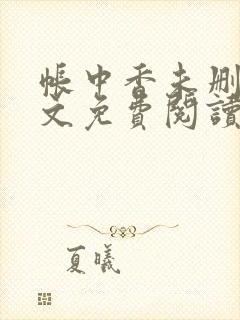 帳中香未刪
文免費閱讀
夏曦